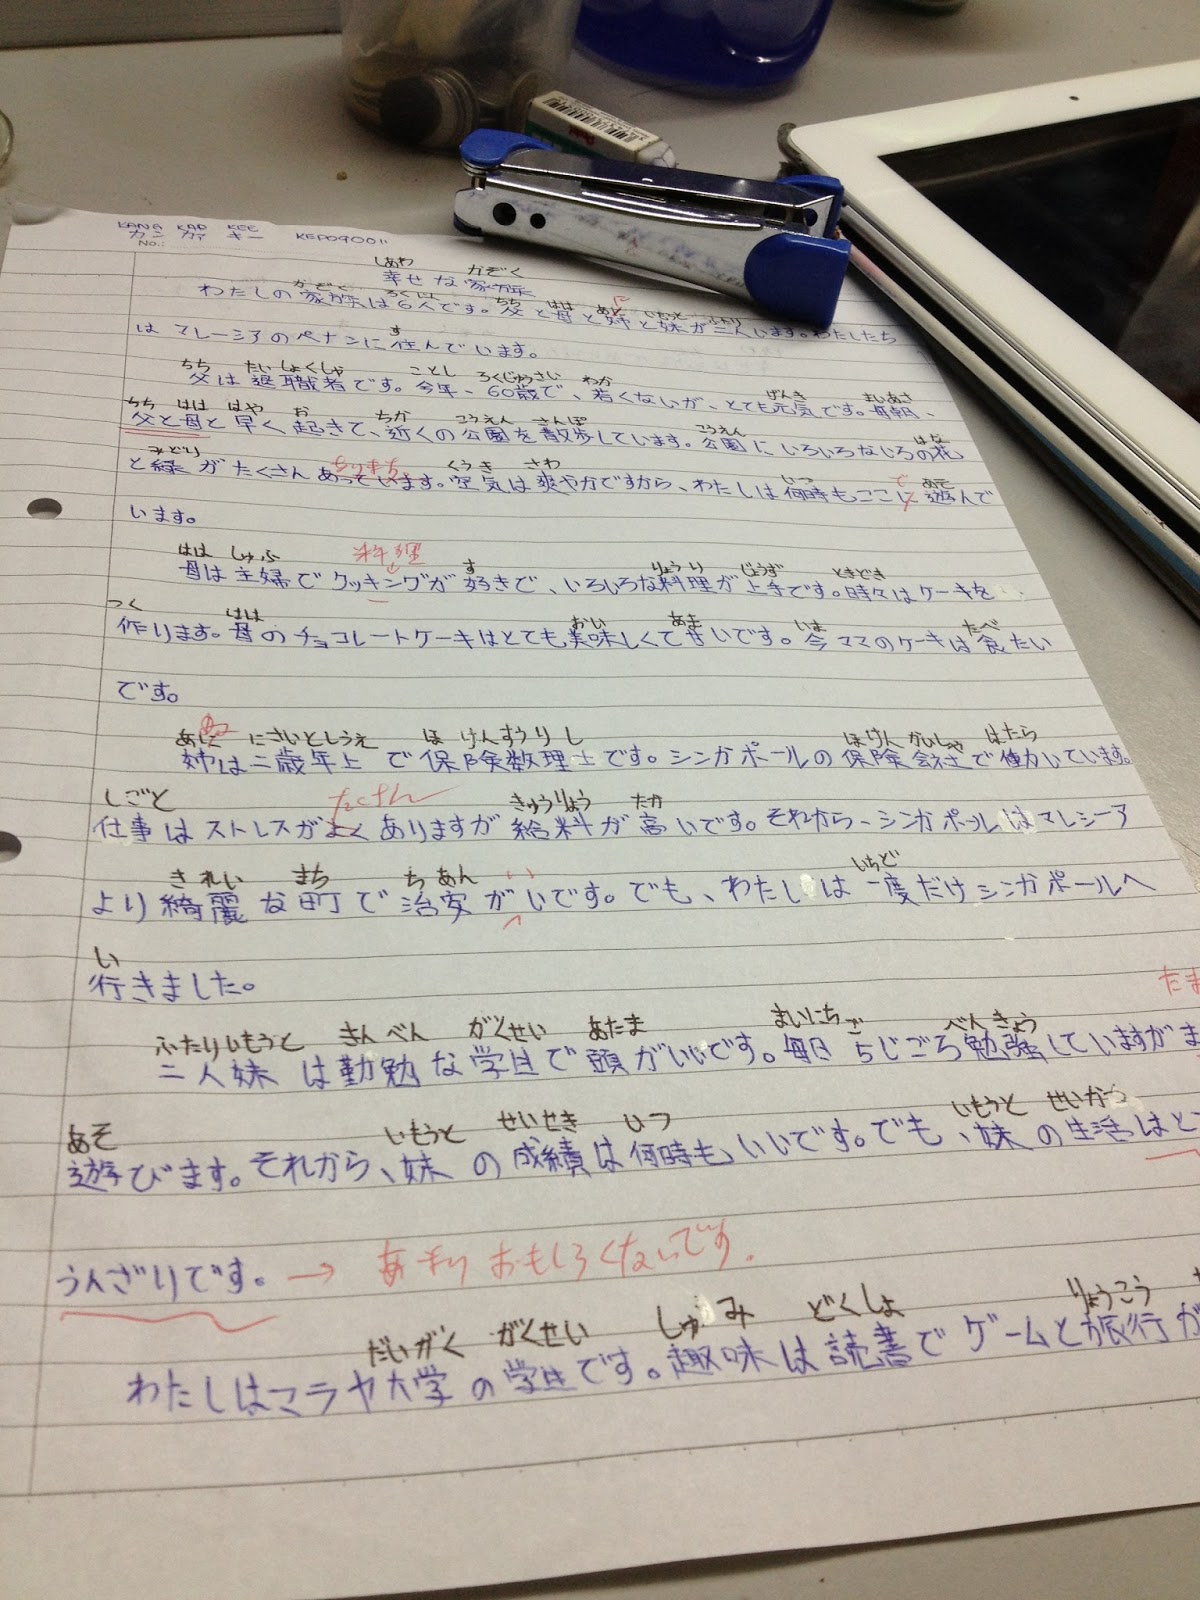 KANG KAD KEE KEP090011
カン カァ キー
No.:
しあわ かぞく
幸せな家族
わたしの家族は6人です。父と母と姉と妹が二人います。わたしたち
す
はマレーシアのペナンに住んでいます。
ちち たいしょくしゃ ことし ろくじゅうさい わか げんき まいあさ
父は退職者です。今年、60歳で、若くないが、とても元気です。毎朝、
ちち はは はや お ちか こうえん さんぽ こうえん はな
父と母と早く起きて、近くの公園を散歩しています。公園にいろいろないろの花
みどり くうき さわ いつ で あそ
と緑がたくさんあっています。空気は爽やかですから、わたしは何時もここに遊んで
います。
はは しゅふ 料理 す りょうり じょうず ときどき
母は主婦でクッキングが好きで、いろいろな料理が上手です。時々はケーキを
つく はは おい あま いま たべ
作ります。母のチョコレートケーキはとても美味しくて甘いです。今ママのケーキは食たい
です。
にさいとしうえ ほけんすうりし ほけんがいしゃ はたら
姉は二歳年上で保険数理士です。シンガポールの保険会社で働いています。
しごと たくさん きゅうりょう たか
仕事はストレスがよくありますが給料が高いです。それから、シンガポールはマレシーア
きれい まち ちあん い いちど
より綺麗な町で治安がいです。でも、わたしは一度だけシンガポールへ
い
行きました。
たま
ふたりいもうと きんべん がくせい あたま まいにち ご べんきょう
二人妹は勤勉な学生で頭がいいです。毎日5じごろ勉強していますがま
あそ いもうと せいせき いつ いもうと せいかつ
遊びます。それから、妹の成績は何時も、いいです。でも、妹の生活はと
うんざりです。→ あまり おもしろくないです。
だいがく がくせい しゅみ どくしょ りょこう
わたしはマラヤ大学の学生です。趣味は読書でゲームと旅行が